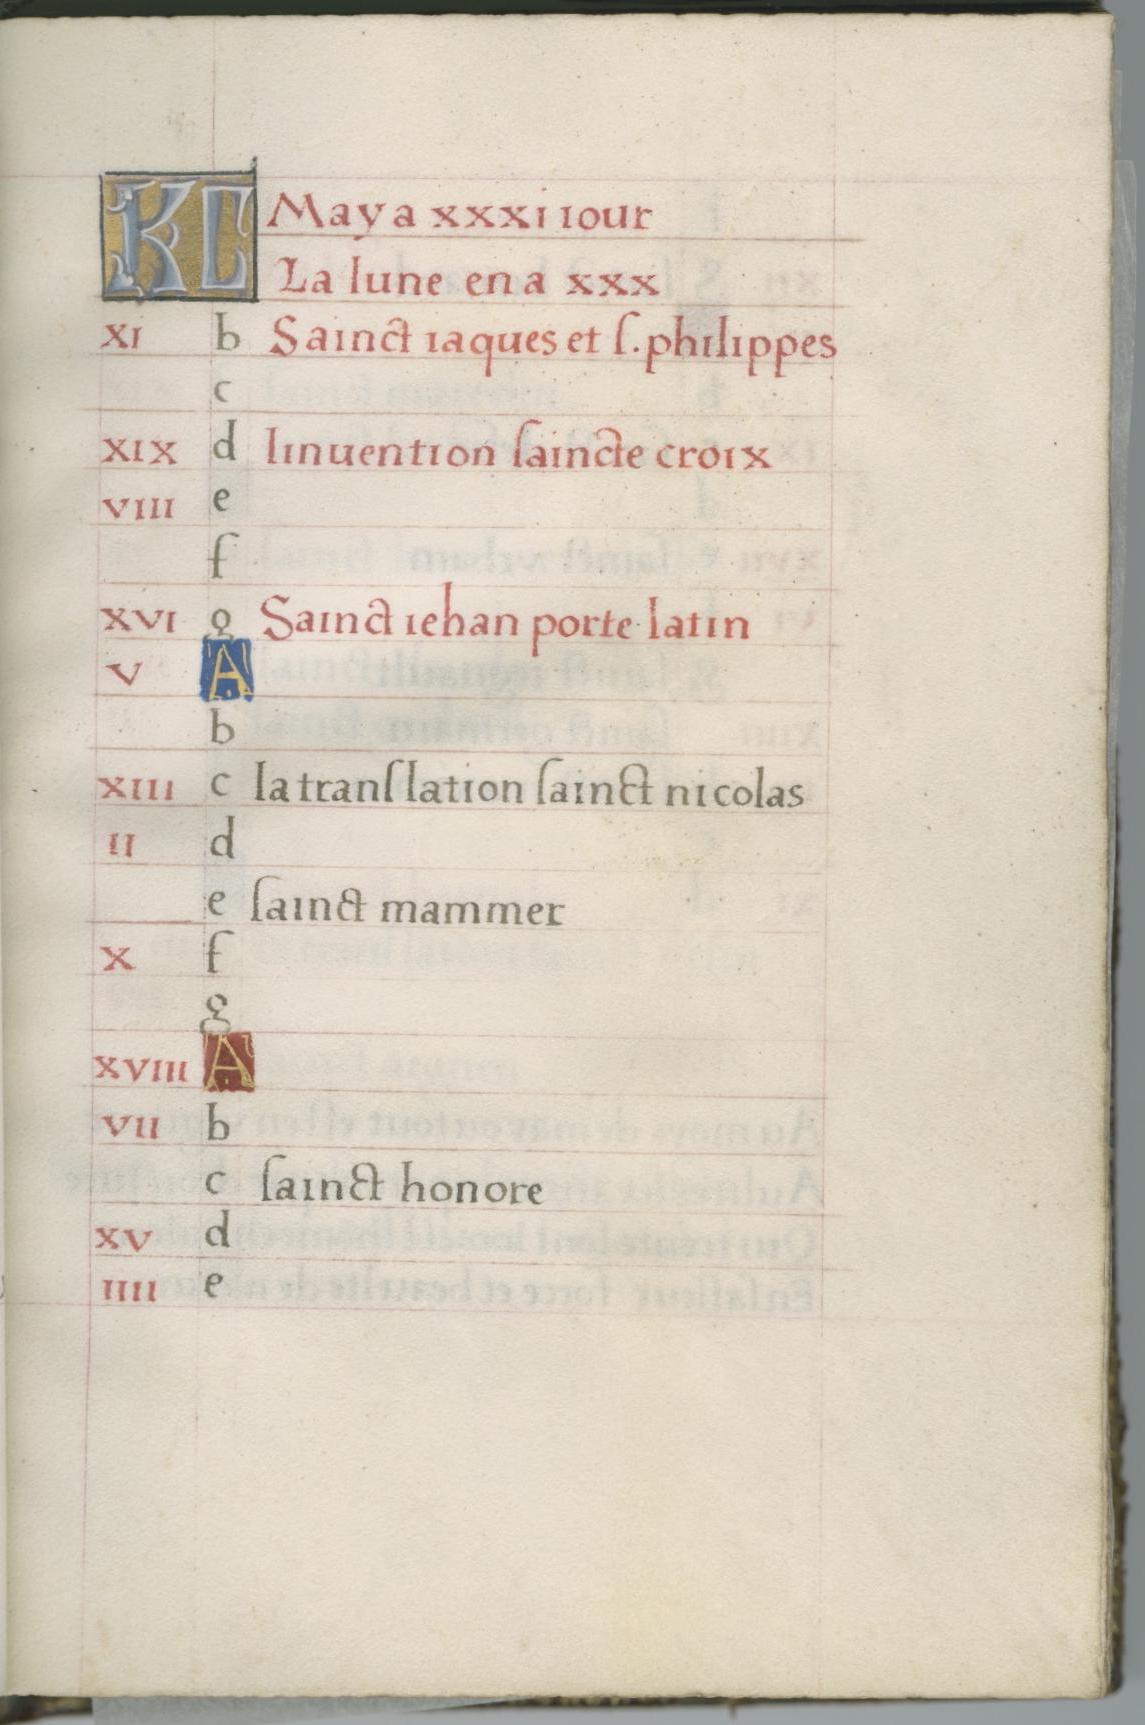 KL May a xxxi iour
La lune en a xxx
XI b Sainct iaques et ſ. philippes
c
XIX d linuention ſaincte croix
VIII e
f
XVI g Sainct iehan porte latin
V A
b
XIII c la tranſlation ſainct nicolas
II d
e ſainct mammer
X f
g
XVIII A
VII b
c ſainct honore
XV d
IIII e